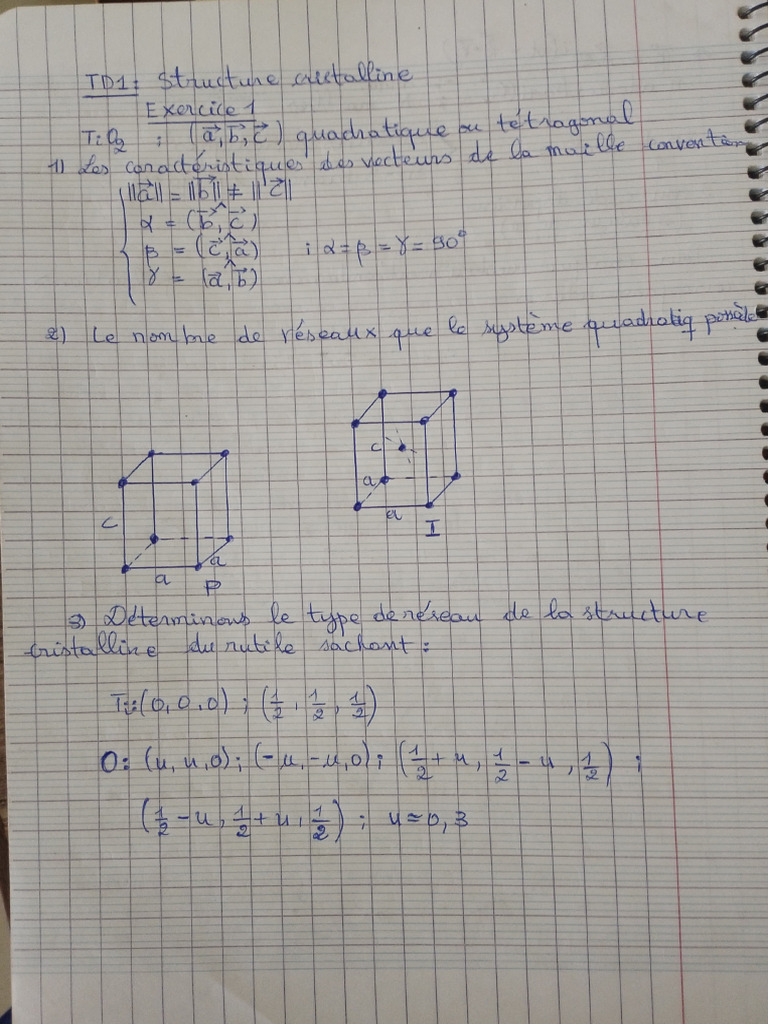 TD1: Structure cristalline
Exercice 1
TiO₂ ; (a⃗, b⃗, c⃗) quadratique ou tétragonal
1) Les caractéristiques des vecteurs de la maille
||a⃗|| = ||b⃗|| ≠ ||c⃗||
α = (b⃗, c⃗)
β = (c⃗, a⃗) ; α = β = γ = 90°
γ = (a⃗, b⃗)
2) Le nombre de réseaux que le système quadratiq possède
c
a
a
P
c
a
a
I
3) Déterminons le type de réseau de la structure
cristalline du rutile sachant :
Ti: (0, 0, 0) ; (1/2, 1/2, 1/2)
O: (u, u, 0) ; (-u, -u, 0) ; (1/2 + u, 1/2 - u, 1/2) ;
(1/2 - u, 1/2 + u, 1/2) ; u = 0,3